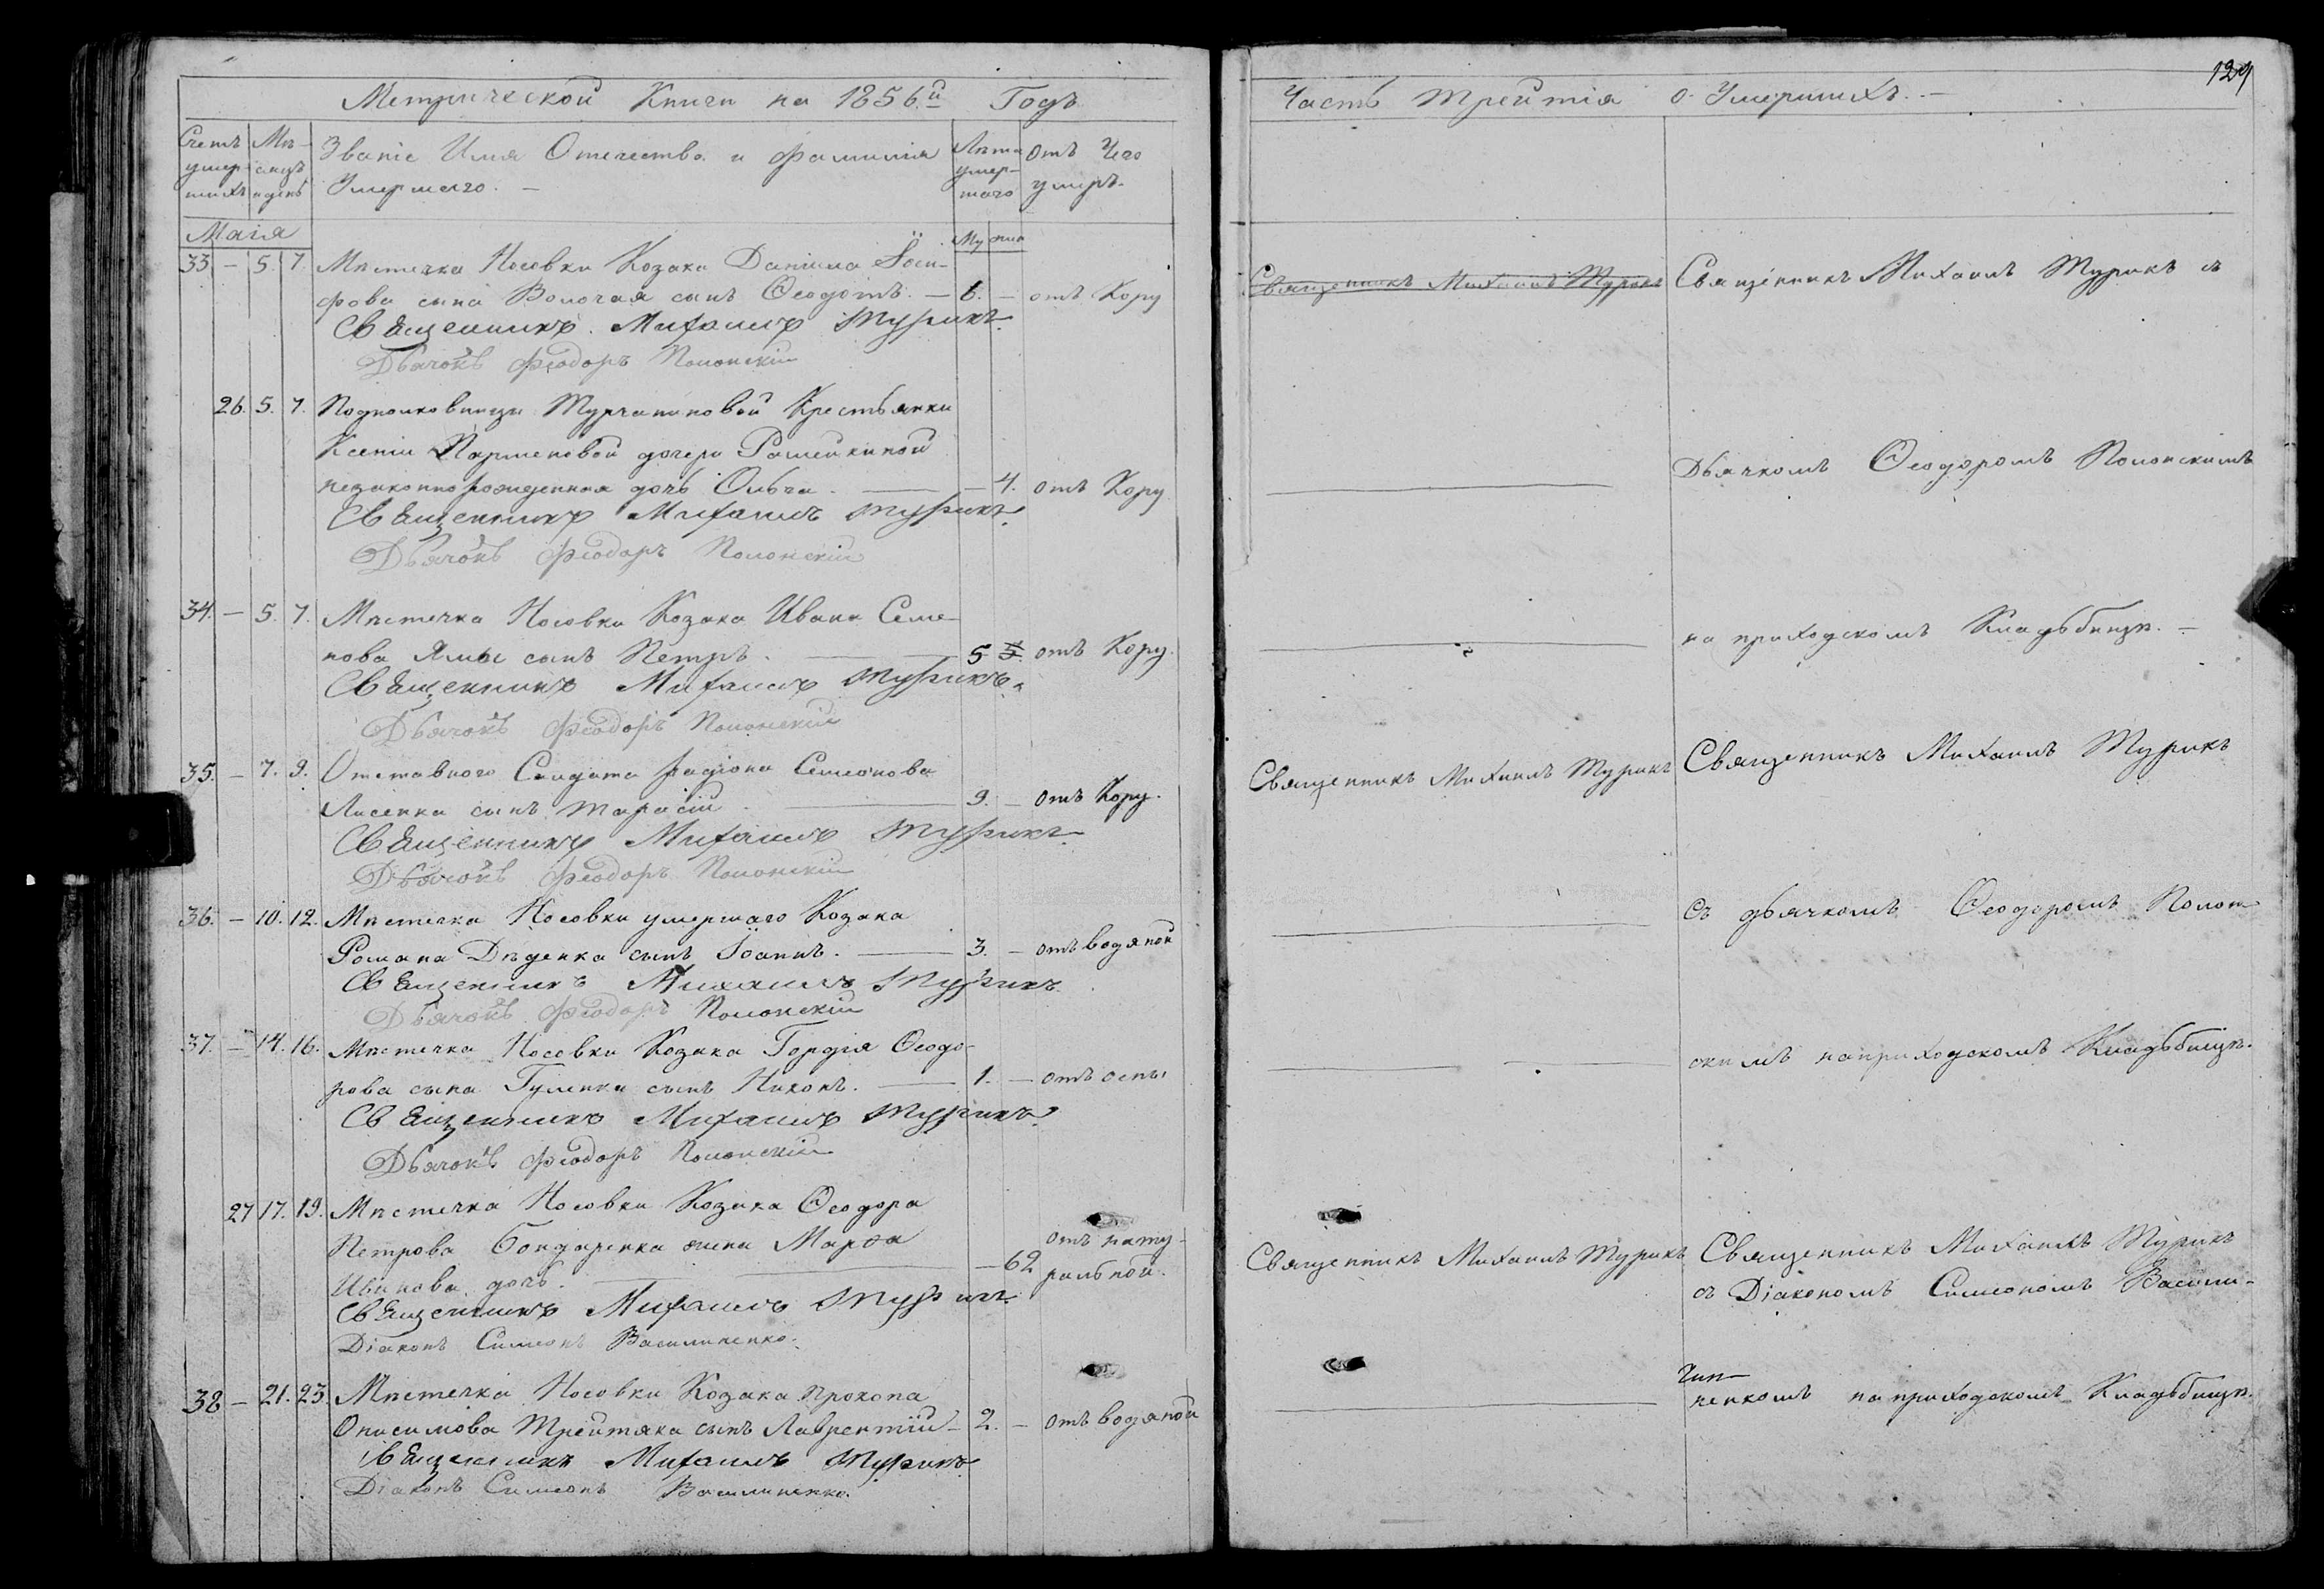 Метрической Книги на 1856.й Годъ
Счетъ умер-шихъ
Мѣ-сяцъ и день
Званіе Имя Отечество и фамилія
Умершаго. —
Лѣта умер-шаго
отъ Чего умеръ.
Маія
Му жен
33 — 5. 7. Мѣстечка Носовки Козака Даніила Іоси-
фова сына Волочая сынъ Ѳеодотъ. — 6. — отъ Кору
Священникъ Михаилъ Турикъ
Дьячокъ Феодоръ Полонскій
26. 5. 7. Подполковницы Турчаниновой Крестьянки
Ксеніи Парменовой дочери
незаконнорожденная дочь Ольга. — 4. отъ Кору
Священникъ Михаилъ Турикъ
Дьячокъ Феодоръ Полонскій
34. — 5. 7. Мѣстечка Носовки Козака Ивана Семе-
нова Ямы сынъ Петръ. — 5 5. отъ Кору.
Священникъ Михаилъ Турикъ.
Дьячокъ Феодоръ Полонскій
35. — 7. 9. Отставного Солдата Радіона Семіонова
Лисенка сынъ Тарасій — 9. — отъ Кору.
Священникъ Михаилъ Турикъ
Дьячокъ Феодоръ Полонскій
36. — 10. 12. Мѣстечка Носовки умершаго Козака
Романа Дѣденка сынъ Іоаннъ. — 3. — отъ водяной
Священникъ Михаилъ Турикъ
Дьячокъ Феодоръ Полонскій
37. — 14. 16. Мѣстечка Носовки Козака Гордія Ѳеодо-
рова сына Гуленка сынъ Никонъ. — 1. — отъ оспы
Священникъ Михаилъ Турикъ
Дьячокъ Феодоръ Полонскій
27 17. 19. Мѣстечка Носовки Козака Ѳеодора
Петрова Бондаренка жена Марѳа
Иванова дочь. — 62 отъ нату-
ральной.
Священникъ Михаилъ Турикъ
Діаконъ Симеонъ Василиненко.
38 — 21. 23. Мѣстечка Носовки Козака Прокопа
Онисимова Трейтяка сынъ Лаврентій — 2. — отъ водяной
Священникъ Михаилъ Турикъ
Діаконъ Симеонъ Василиненко.
129
Часть Трейтія о Умершихъ. —
Священникъ Михаилъ Турикъ Священникъ Михаилъ Турикъ съ
Дьячкомъ Ѳеодоромъ Полонскимъ
на приходскомъ Кладьбищѣ. —
Священникъ Михаилъ Турикъ Священникъ Михаилъ Турикъ
Съ дьячкомъ Ѳеодоромъ Полон-
скимъ на приходскомъ Кладьбищѣ.
Священникъ Михаилъ Турикъ Священникъ Михаилъ Турикъ
съ Діакономъ Симеономъ Васили-
ненкомъ на приходскомъ Кладьбищѣ.